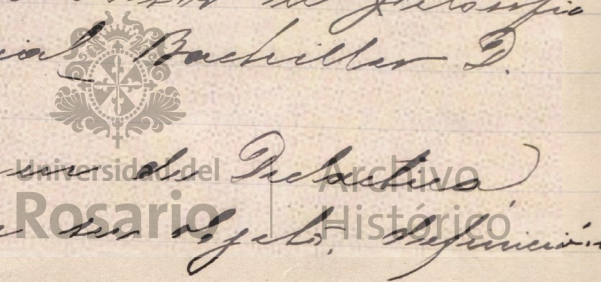 de filosofia
Bachiller D.
de Dialectica
su objeto, definición
Universidad del
Rosario
Archivo
Histórico